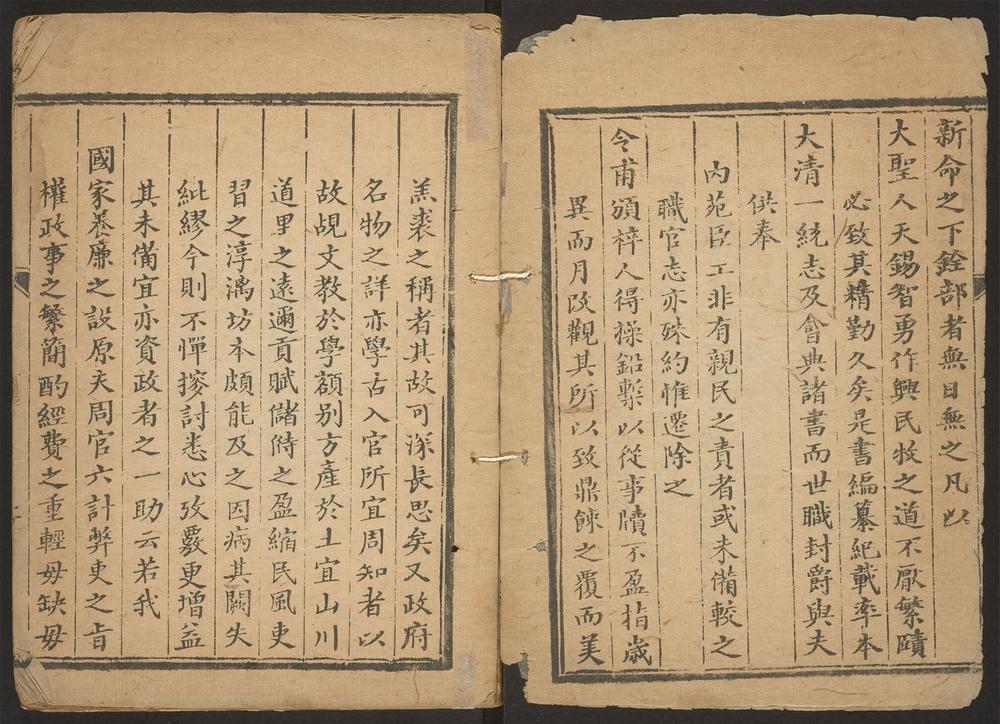 新命之下銓部者無日無之凡以
大聖人天錫智勇作興民牧之道不厭繁賾
必致其精勤久矣是書編纂紀載率本
大清一統志及會典諸書而世職封爵與夫
供奉
內苑臣工非有親民之責者或未備較之
職官志亦殊約惟遷除之
令甫頒梓人得操鉛槧以從事牘不盈指歲
異而月改觀其所以致鼎餗之覆而美
羔裘之稱者其故可深長思矣又政府
名物之詳亦學古入官所宜周知者以
故覘文教於學額別方產於土宜山川
道里之遠邇貢賦儲偫之盈縮民風吏
習之淳漓坊本頗能及之因病其闕失
紕繆今則不憚搜討悉心攷覈更增益
其未備宜亦資政者之一助云若我
國家養廉之設原夫周官六計弊吏之旨
權政事之繁簡酌經費之重輕毋缺毋